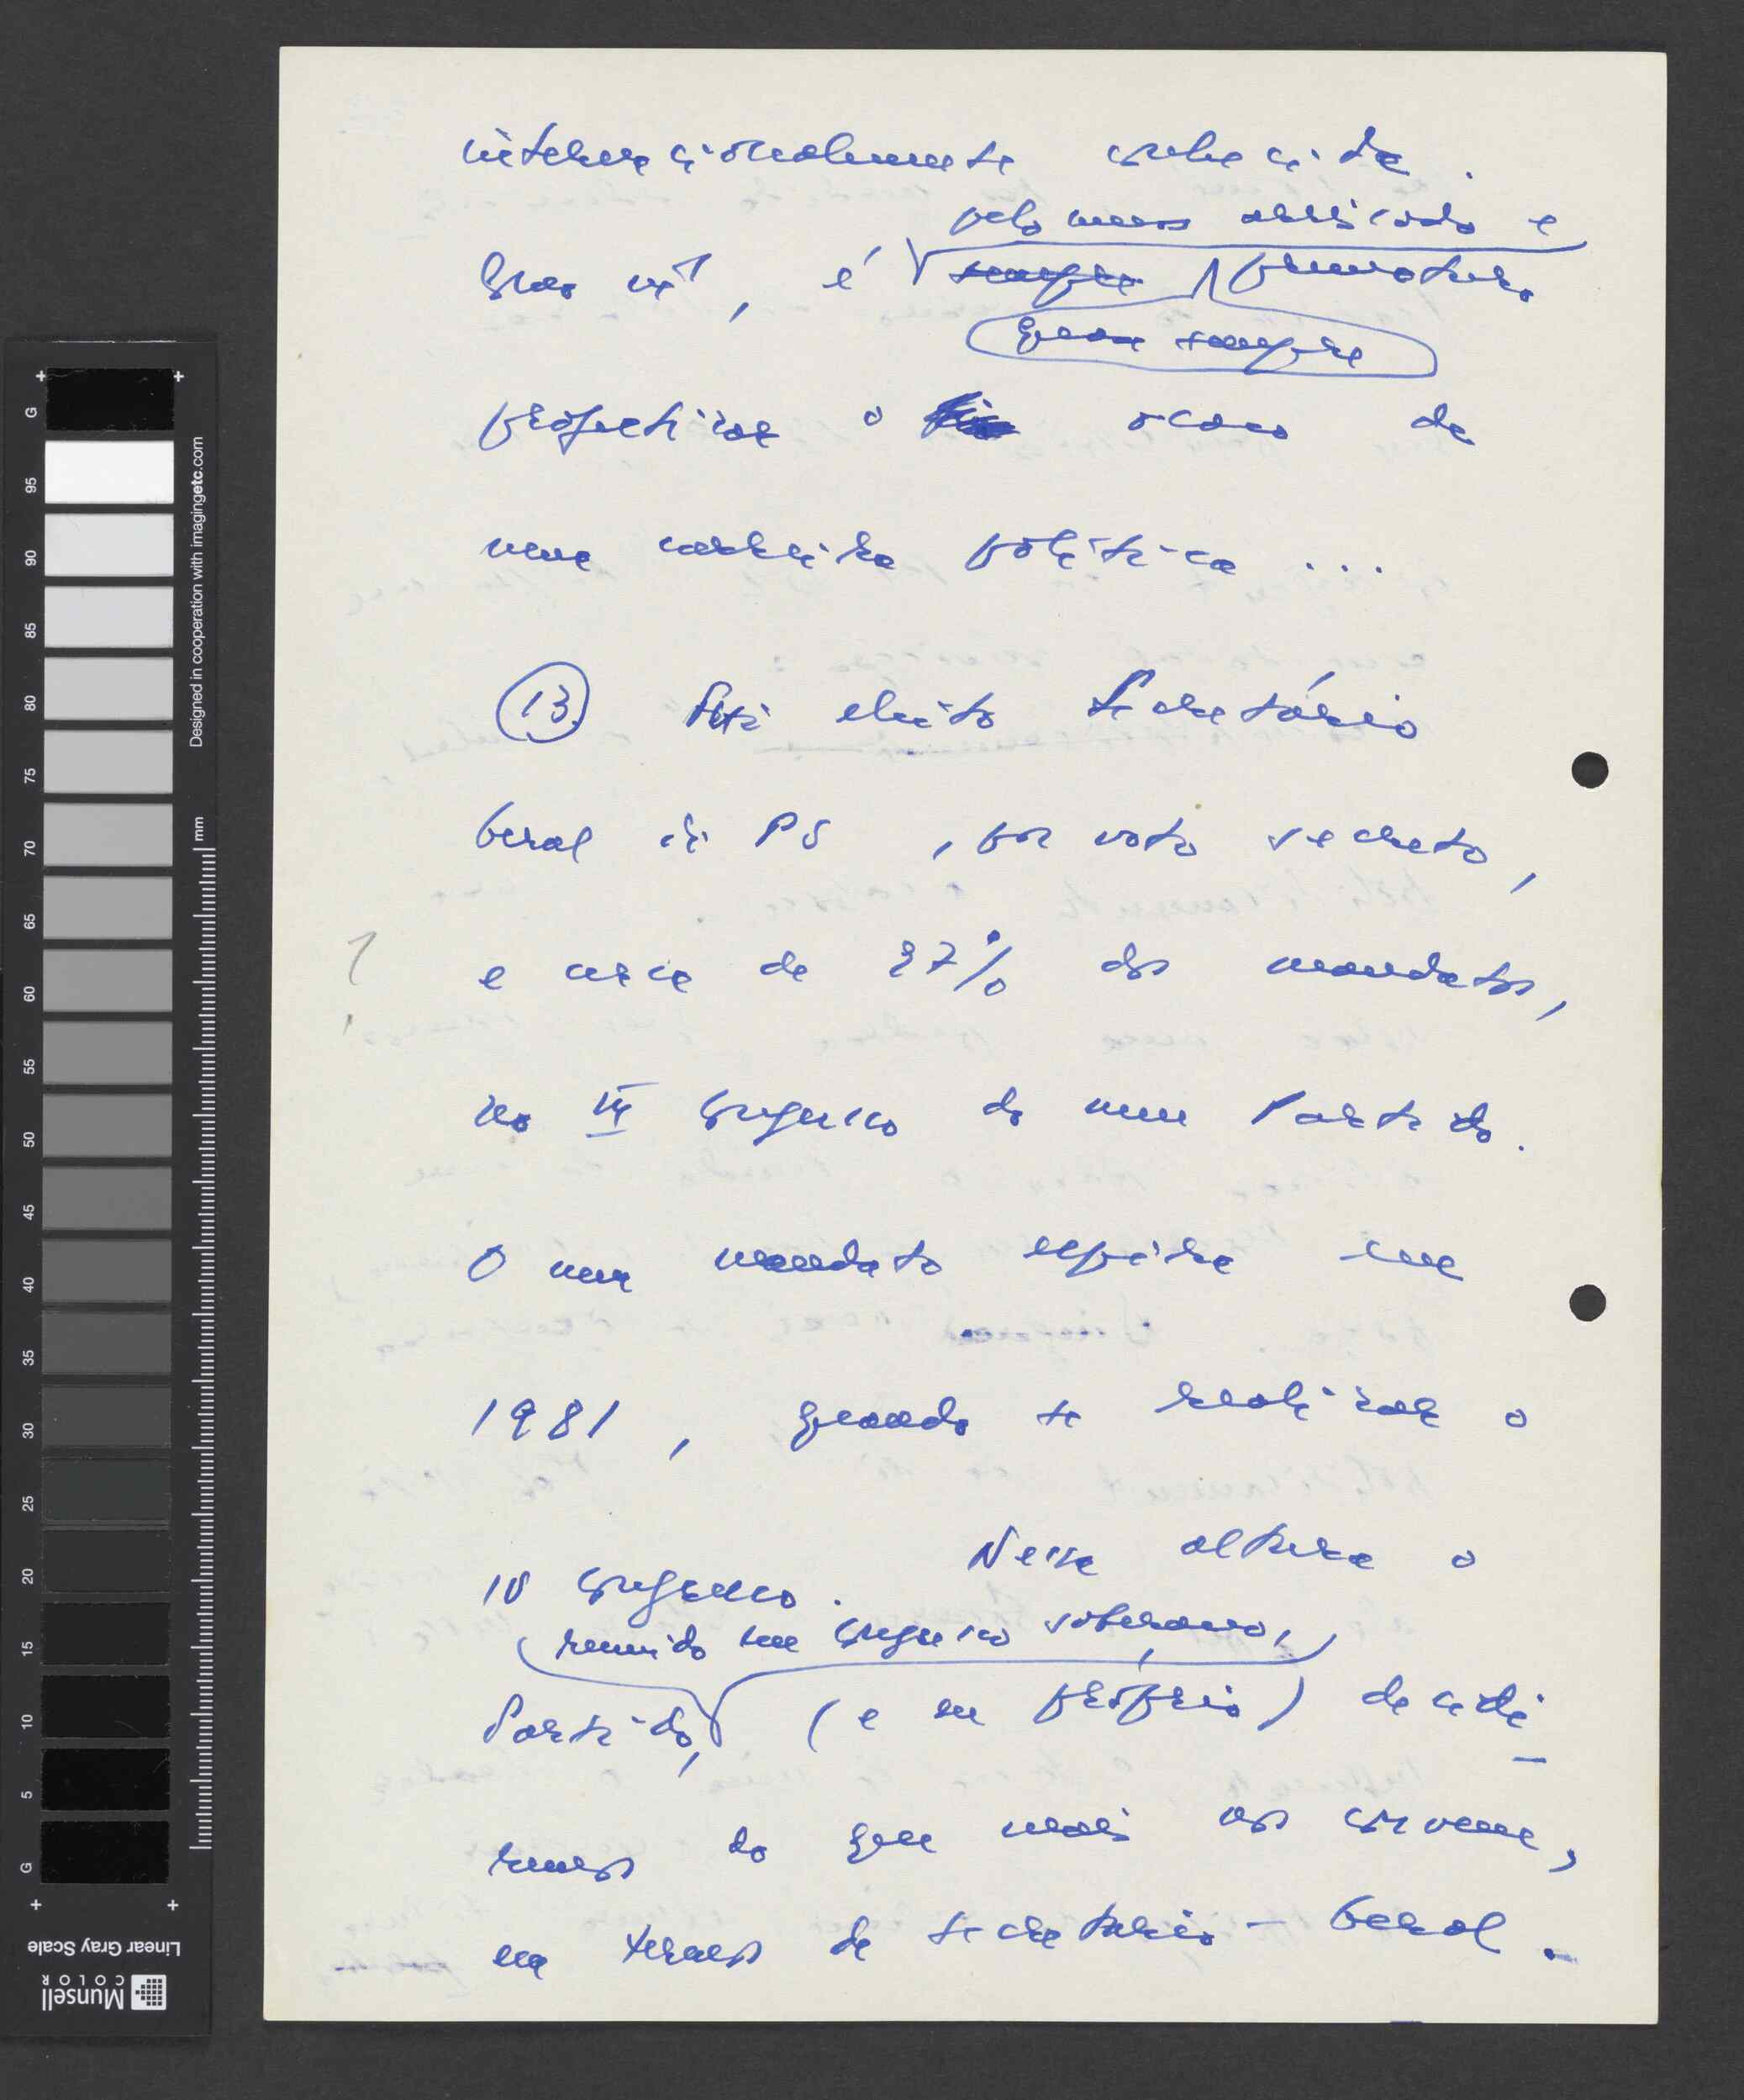 internacionalmente conhecida.
pelo menos arriscado e
Como vê, é sempre prematuro
quase sempre
profetizar o ocaso de
uma carreira política ...
13 Fui eleito Secretário
Geral do PS, por voto secreto,
e cerca de 87% dos mandatos,
no III Congresso do meu Partido.
O meu mandato expira em
1981, quando se realizar o
IV Congresso. Nessa altura o
reunido em Congresso soberano,
Partido, (e eu próprio) decidi-
remos do que mais nos convém,
em termos de Secretário-Geral.
?
G
95
90
85
80
75
70
65
60
55
50
45
40
35
30
25
20
15
10
5
G
mm
Designed in cooperation with imagingetc.com
Linear Gray Scale
Munsell
COLOR